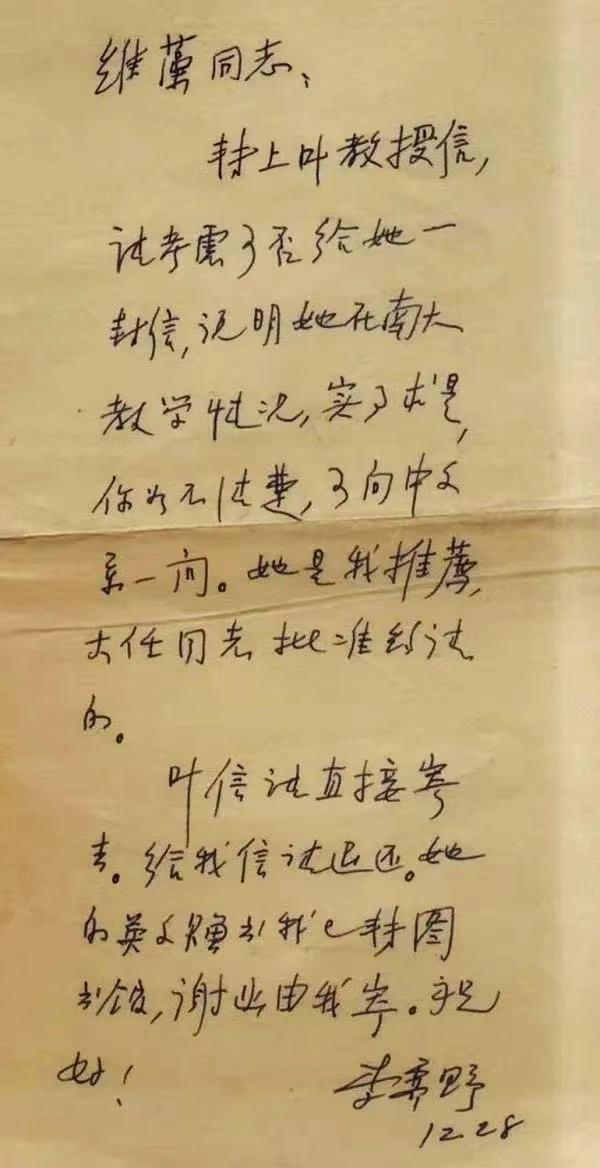 维藩同志、
转上叶教授信,
请考虑可否给她一
封信,说明她在南大
教学情况,实事求是,
你如不清楚,可问中文
系一问。她是我推荐,
大任同志批准约请
的。
叶信请直接寄
去。给我信请退还。她
的英文赠书我已转图
书馆,谢此由我寄。祝
好!
李霁野
12.28